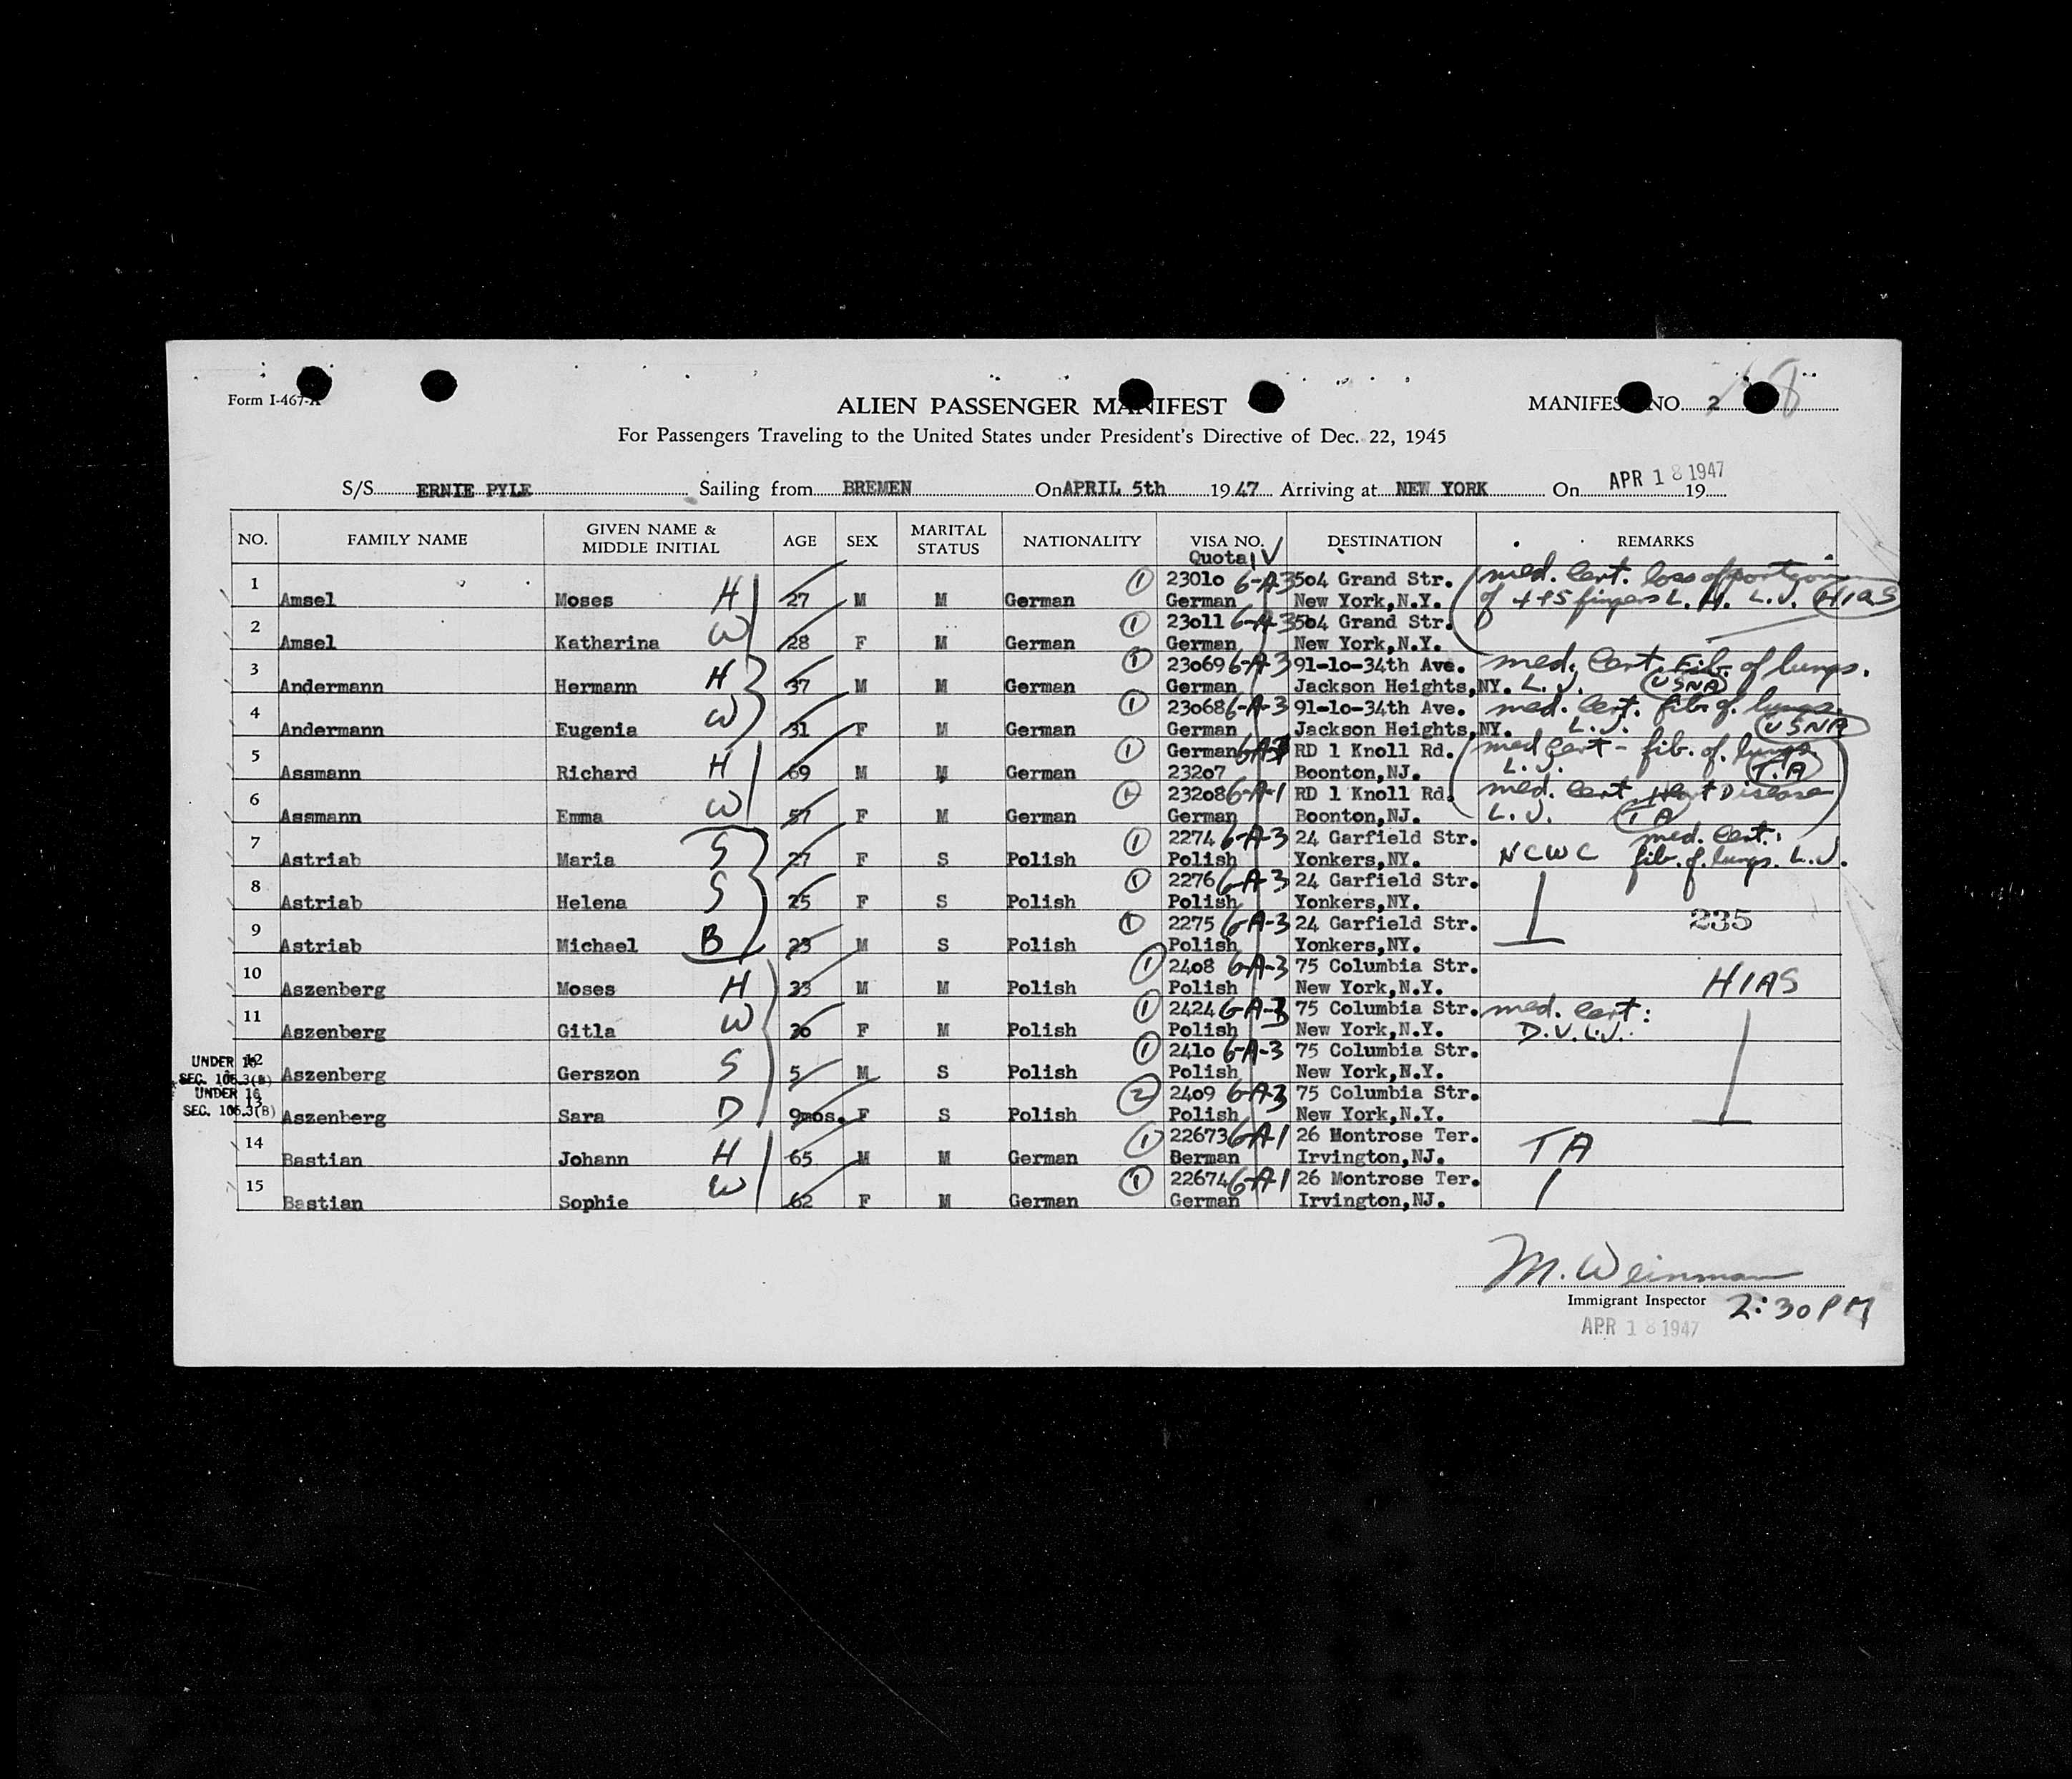 Form I-467-A
ALIEN PASSENGER MANIFEST
MANIFEST NO. 2 8
For Passengers Traveling to the United States under President's Directive of Dec. 22, 1945
S/S ERNIE PYLE Sailing from BREMEN On APRIL 5th 19 47 Arriving at NEW YORK On APR 18 1947 19
NO. FAMILY NAME GIVEN NAME & MIDDLE INITIAL AGE SEX MARITAL STATUS NATIONALITY VISA NO. Quota IV DESTINATION REMARKS
1 Amsel Moses H 27 M M German 1 23010 6-A-3 German 504 Grand Str. New York, N.Y. med. cert. loss of portion of 4+5 fingers L. H. L.J. HIAS
2 Amsel Katharina W 28 F M German 1 23011 6-A-3 German 504 Grand Str. New York, N.Y.
3 Andermann Hermann H 37 M M German 1 23069 6-A-3 German 91-10-34th Ave. Jackson Heights, NY. med. Cert. Fib. of lungs. L.J. USNA
4 Andermann Eugenia W 31 F M German 1 23068 6-A-3 German 91-10-34th Ave. Jackson Heights, NY. med. Cert. fib. of lungs. L.J. USNA
5 Assmann Richard H 69 M M German 1 German 23207 RD 1 Knoll Rd. Boonton, NJ. med cert - fib. of lungs L.J. T.A
6 Assmann Emma W 57 F M German 1 23208 6-A-1 German RD 1 Knoll Rd. Boonton, NJ. med. cert Heart Disease L.J. TA
7 Astriab Maria S 27 F S Polish 1 2274 6-A-3 Polish 24 Garfield Str. Yonkers, NY. NCWC med. Cert: fib. of lungs. L.J.
8 Astriab Helena S 25 F S Polish 1 2276 6-A-3 Polish 24 Garfield Str. Yonkers, NY.
9 Astriab Michael B 23 M S Polish 1 2275 6-A-3 Polish 24 Garfield Str. Yonkers, NY. 235
10 Aszenberg Moses H 33 M M Polish 1 2408 6-A-3 Polish 75 Columbia Str. New York, N.Y. HIAS
11 Aszenberg Gitla W 26 F M Polish 1 2424 6-A-3 Polish 75 Columbia Str. New York, N.Y. med. cert: D.V.L.J.
UNDER 16 SEC. 106.3(B) 12 Aszenberg Gerszon S 5 M S Polish 1 2410 6-A-3 Polish 75 Columbia Str. New York, N.Y.
UNDER 16 SEC. 106.3(B) 13 Aszenberg Sara D 9mos. F S Polish 2 2409 6-A-3 Polish 75 Columbia Str. New York, N.Y.
14 Bastian Johann H 65 M M German 1 22673 6-A-1 Berman 26 Montrose Ter. Irvington, NJ. TA
15 Bastian Sophie W 62 F M German 1 22674 6-A-1 German 26 Montrose Ter. Irvington, NJ.
M. Weinman
Immigrant Inspector 2:30 PM
APR 18 1947